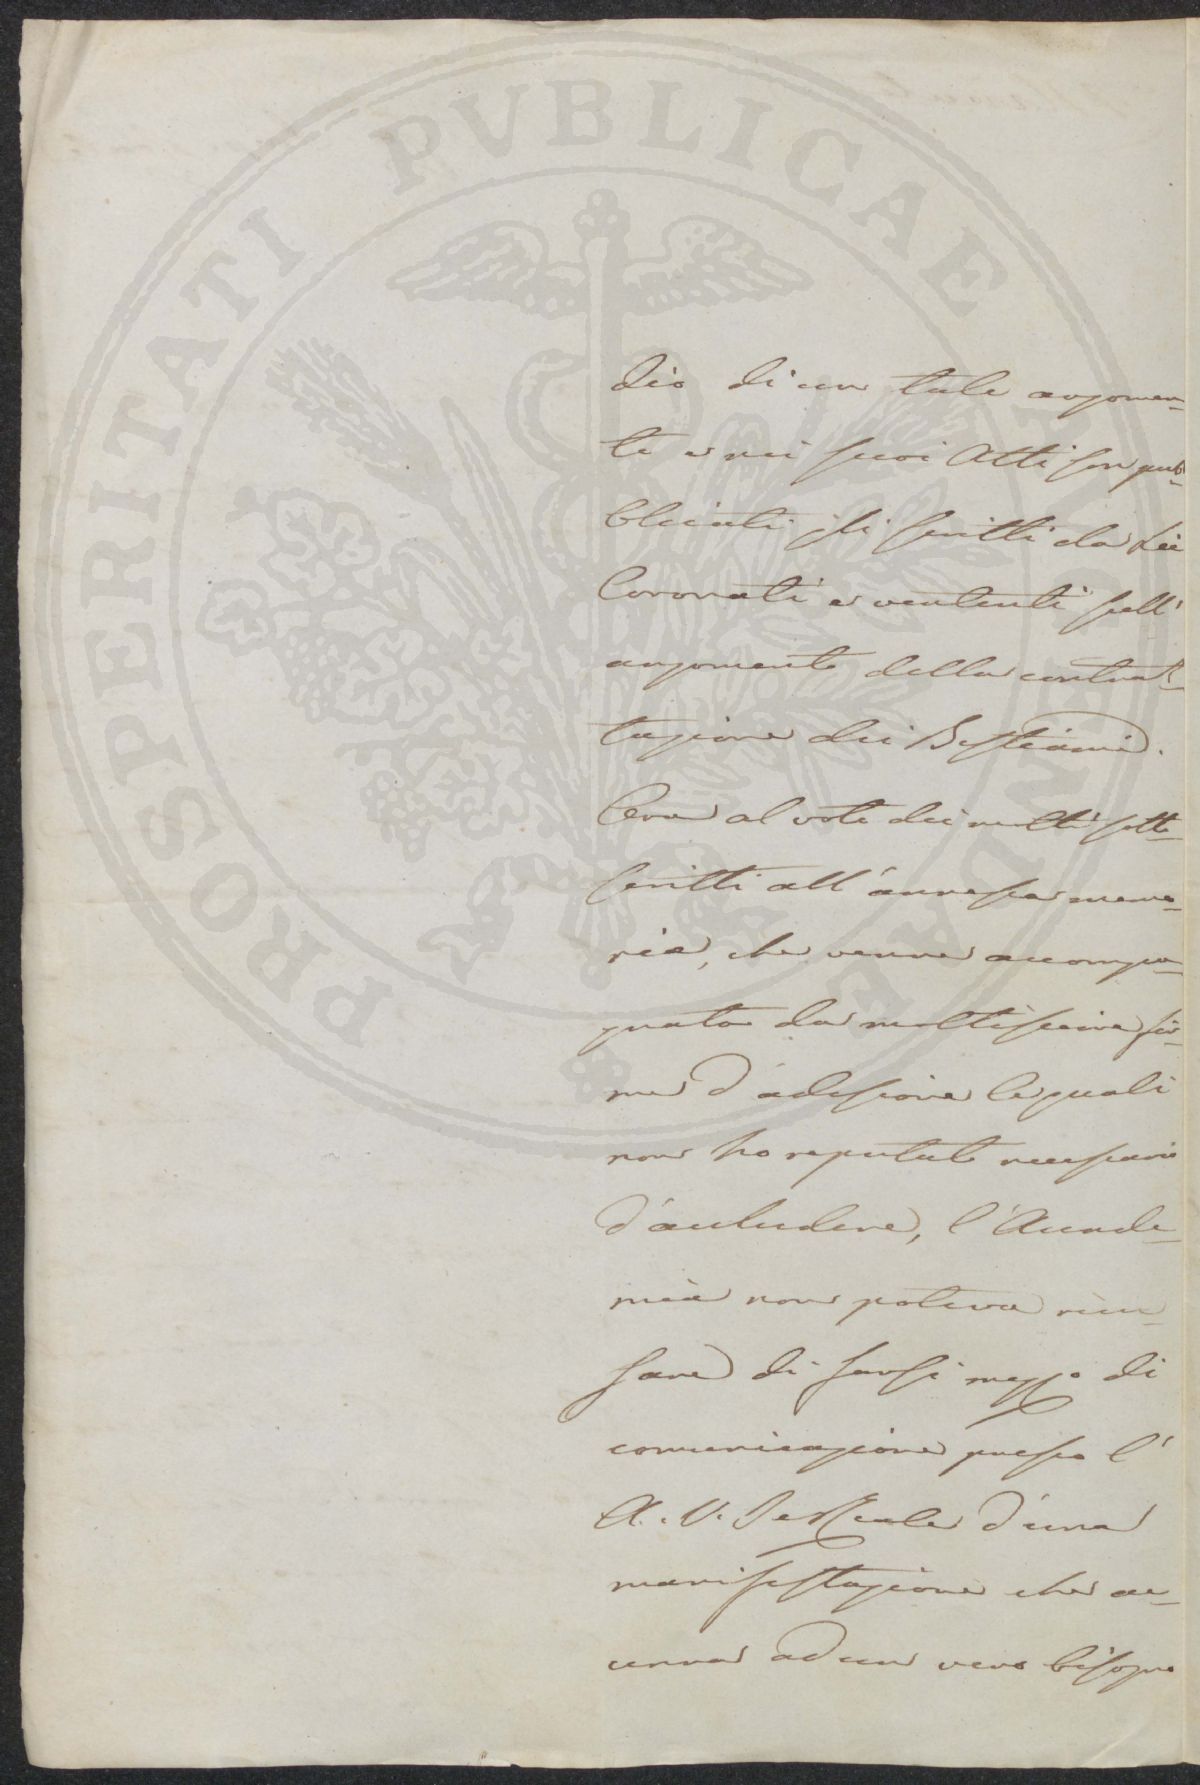 PROSPERITATI PUBLICAE AUGENDAE
dio di un tale argomen-
to e nei suoi Atti son pub-
blicati gli scritti da Lei
Coronati e vertenti sull'
argomento della contrat-
tazione dei Bestiami.
Cera al voto dei molti sotto-
scritti all'annessa memo-
ria, che venne accompa-
gnata da moltissime fir-
me d'adesione le quali
non ho reputato necessario
d'accludere, l'Accade-
mia non poteva ricu-
sare di farsi mezzo di
comunicazione presso l'
A. V. I e Reale d'una
manifestazione che ac-
cenna ad un vero bisogno